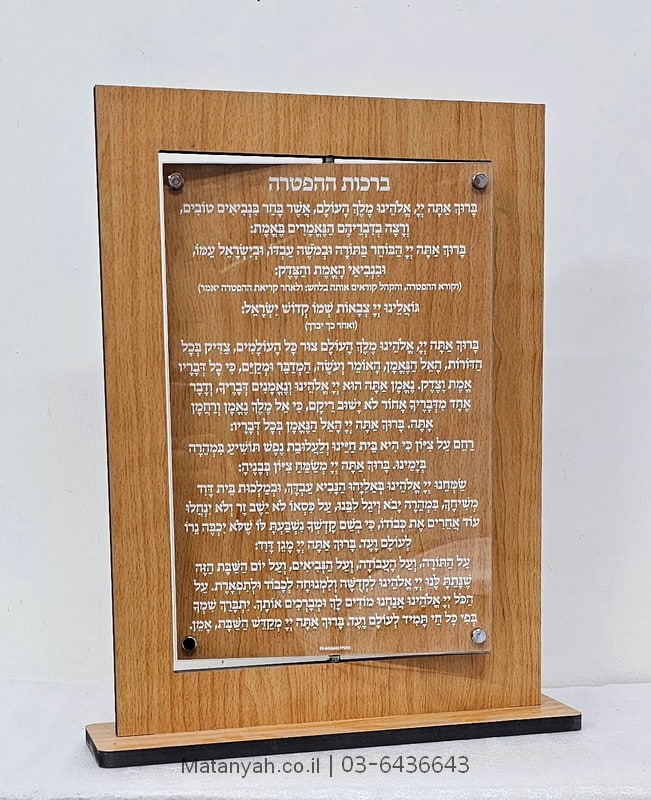 ברכות ההפטרה
בָּרוּךְ אַתָּה יְיָ, אֱלֹהֵינוּ מֶלֶךְ הָעוֹלָם, אֲשֶׁר בָּחַר בִּנְבִיאִים טוֹבִים,
וְרָצָה בְדִבְרֵיהֶם הַנֶּאֱמָרִים בֶּאֱמֶת:
בָּרוּךְ אַתָּה יְיָ הַבּוֹחֵר בַּתּוֹרָה וּבְמֹשֶׁה עַבְדּוֹ, וּבְיִשְׂרָאֵל עַמּוֹ,
וּבִנְבִיאֵי הָאֱמֶת וְהַצֶּדֶק:
(וקורא ההפטרה, והקהל קוראים אותה בלחש: ולאחר קריאת ההפטרה יאמר)
גּוֹאֲלֵינוּ יְיָ צְבָאוֹת שְׁמוֹ קְדוֹשׁ יִשְׂרָאֵל:
(ואחר כך יברך)
בָּרוּךְ אַתָּה יְיָ, אֱלֹהֵינוּ מֶלֶךְ הָעוֹלָם צוּר כָּל הָעוֹלָמִים, צַדִּיק בְּכָל
הַדּוֹרוֹת, הָאֵל הַנֶּאֱמָן, הָאוֹמֵר וְעוֹשֶׂה, הַמְדַבֵּר וּמְקַיֵּם, כִּי כָל דְּבָרָיו
אֱמֶת וָצֶדֶק. נֶאֱמָן אַתָּה הוּא יְיָ אֱלֹהֵינוּ וְנֶאֱמָנִים דְּבָרֶיךָ, וְדָבָר
אֶחָד מִדְּבָרֶיךָ אָחוֹר לֹא יָשׁוּב רֵיקָם, כִּי אֵל מֶלֶךְ נֶאֱמָן וְרַחֲמָן
אָתָּה. בָּרוּךְ אַתָּה יְיָ הָאֵל הַנֶּאֱמָן בְּכָל דְּבָרָיו:
רַחֵם עַל צִיּוֹן כִּי הִיא בֵּית חַיֵּינוּ וְלַעֲלוּבַת נֶפֶשׁ תּוֹשִׁיעַ בִּמְהֵרָה
בְיָמֵינוּ. בָּרוּךְ אַתָּה יְיָ מְשַׂמֵּחַ צִיּוֹן בְּבָנֶיהָ:
שַׂמְּחֵנוּ יְיָ אֱלֹהֵינוּ בְּאֵלִיָּהוּ הַנָּבִיא עַבְדֶּךָ, וּבְמַלְכוּת בֵּית דָּוִד
מְשִׁיחֶךָ, בִּמְהֵרָה יָבֹא וְיָגֵל לִבֵּנוּ, עַל כִּסְאוֹ לֹא יֵשֵׁב זָר וְלֹא יִנְחֲלוּ
עוֹד אֲחֵרִים אֶת כְּבוֹדוֹ, כִּי בְשֵׁם קָדְשְׁךָ נִשְׁבַּעְתָּ לּוֹ שֶׁלֹּא יִכְבֶּה נֵרוֹ
לְעוֹלָם וָעֶד. בָּרוּךְ אַתָּה יְיָ מָגֵן דָּוִד:
עַל הַתּוֹרָה, וְעַל הָעֲבוֹדָה, וְעַל הַנְּבִיאִים, וְעַל יוֹם הַשַּׁבָּת הַזֶּה
שֶׁנָּתַתָּ לָּנוּ יְיָ אֱלֹהֵינוּ לִקְדֻשָּׁה וְלִמְנוּחָה לְכָבוֹד וּלְתִפְאָרֶת. עַל
הַכֹּל יְיָ אֱלֹהֵינוּ אֲנַחְנוּ מוֹדִים לָךְ וּמְבָרְכִים אוֹתָךְ. יִתְבָּרַךְ שִׁמְךָ
בְּפִי כָל חַי תָּמִיד לְעוֹלָם וָעֶד. בָּרוּךְ אַתָּה יְיָ מְקַדֵּשׁ הַשַּׁבָּת, אָמֵן.
Matanyah.co.il | 03-6436643